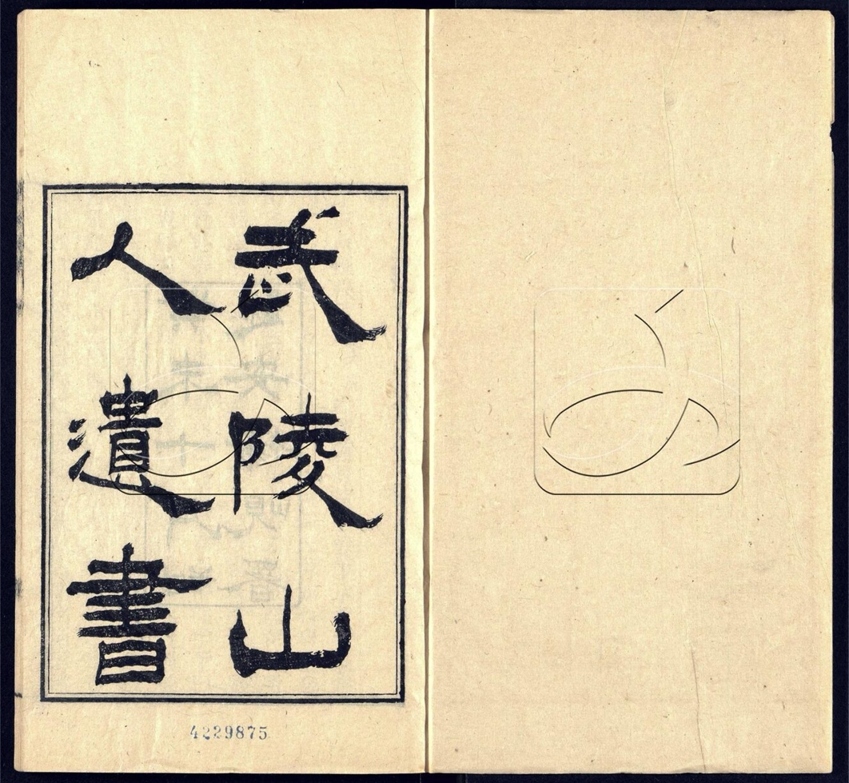 武陵山
人遺書
4229875